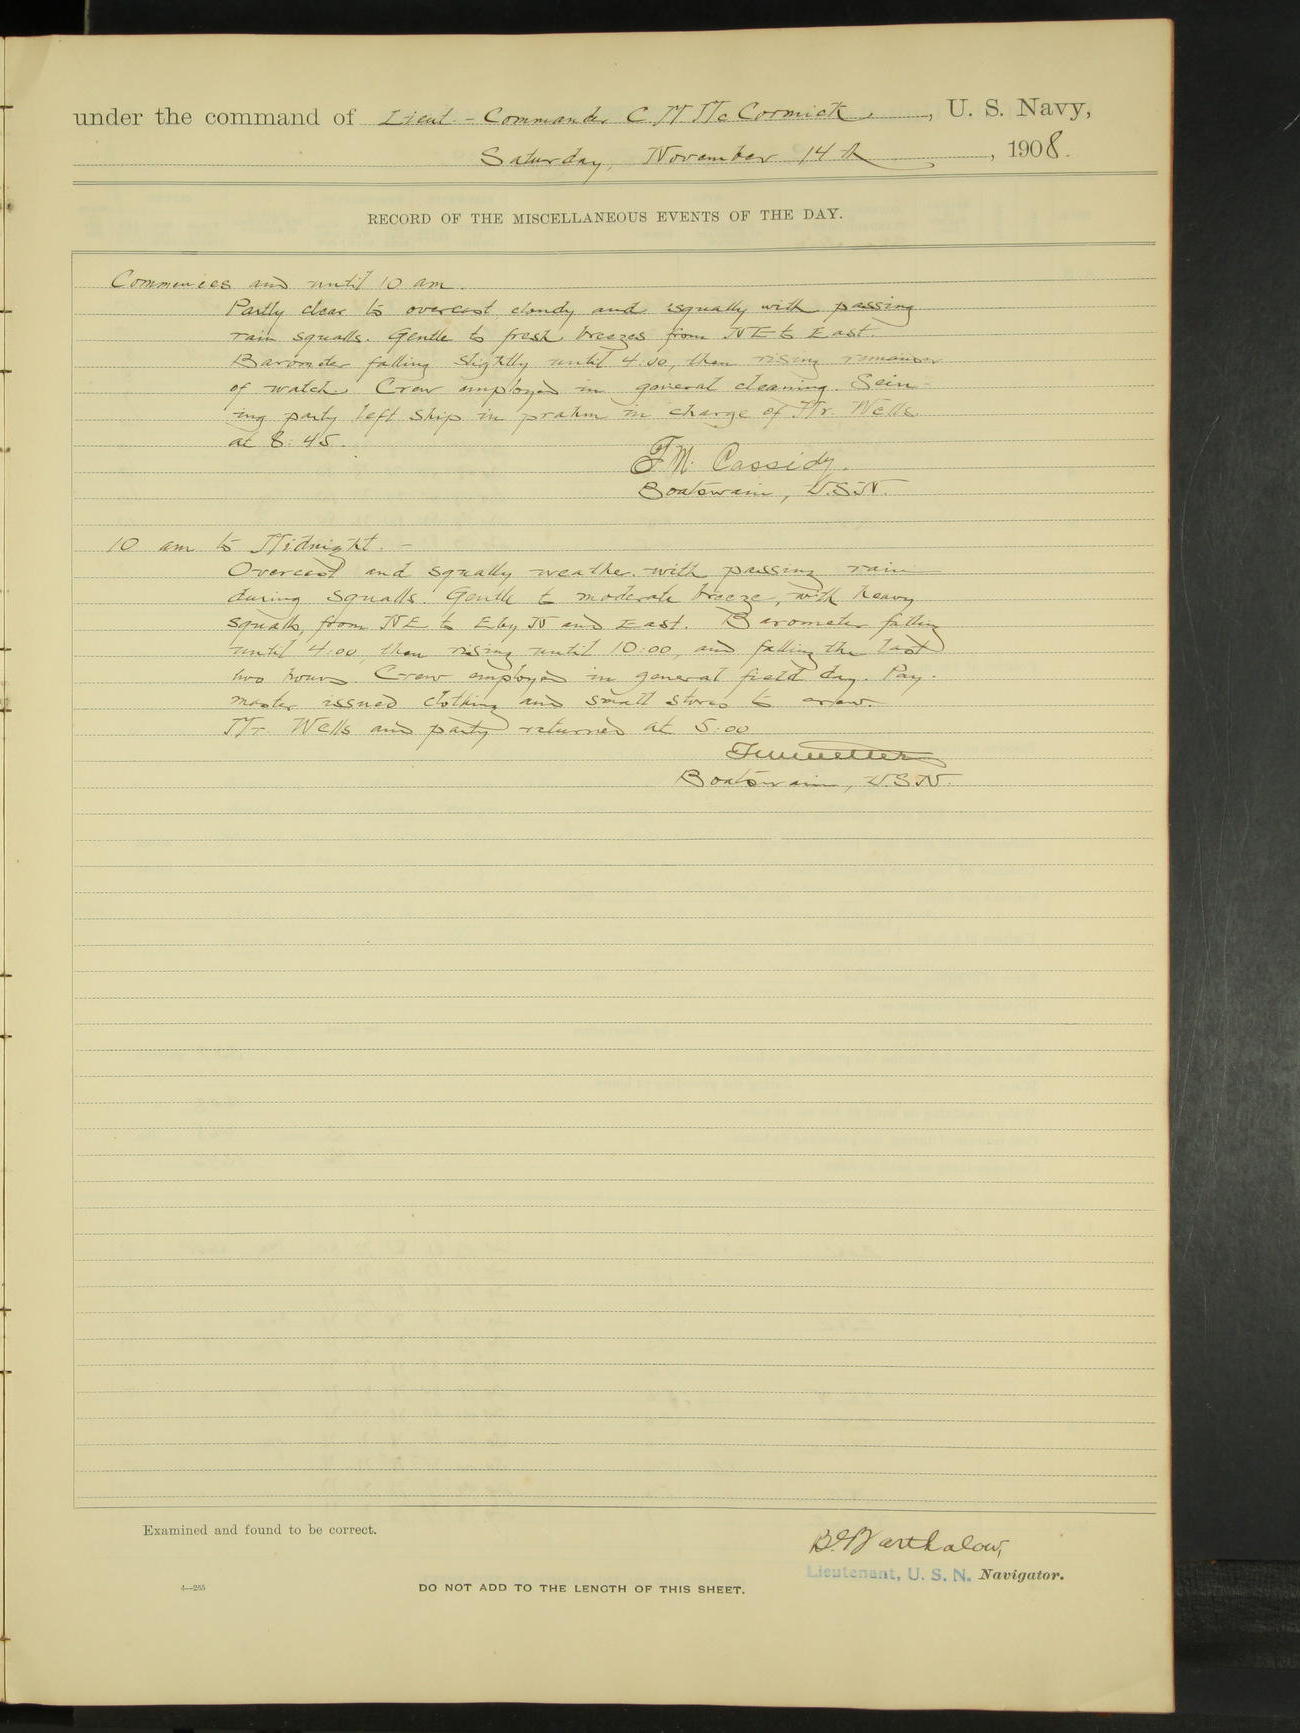 under the command of Lieut.-Commander C. M McCormick, U. S. Navy,
Saturday, November 14th, 1908.
RECORD OF THE MISCELLANEOUS EVENTS OF THE DAY.
Commences and until 10 am.
Partly clear to overcast cloudy and squally with passing
rain squalls. Gentle to fresh breezes from NE to East.
Barometer falling slightly until 4:00, then rising remainder
of watch. Crew employed in general cleaning. Sein-
ing party left ship in prahm in charge of Mr. Wells
at 8:45.
F.M. Cassidy.
Boatswain, U.S.N.
10 am to Midnight. -
Overcast and squally weather with passing rain
during squalls. Gentle to moderate breeze, with heavy
squalls, from NE to E by N and East. Barometer falling
until 4:00, then rising until 10:00, and falling the last
two hours. Crew employed in general field day. Pay-
master issued clothing and small stores to crew.
Mr. Wells and party returned at 5:00
Boatswain, U.S.N.
Examined and found to be correct.
Barthalow,
Lieutenant, U. S. N. Navigator.
4—255
DO NOT ADD TO THE LENGTH OF THIS SHEET.